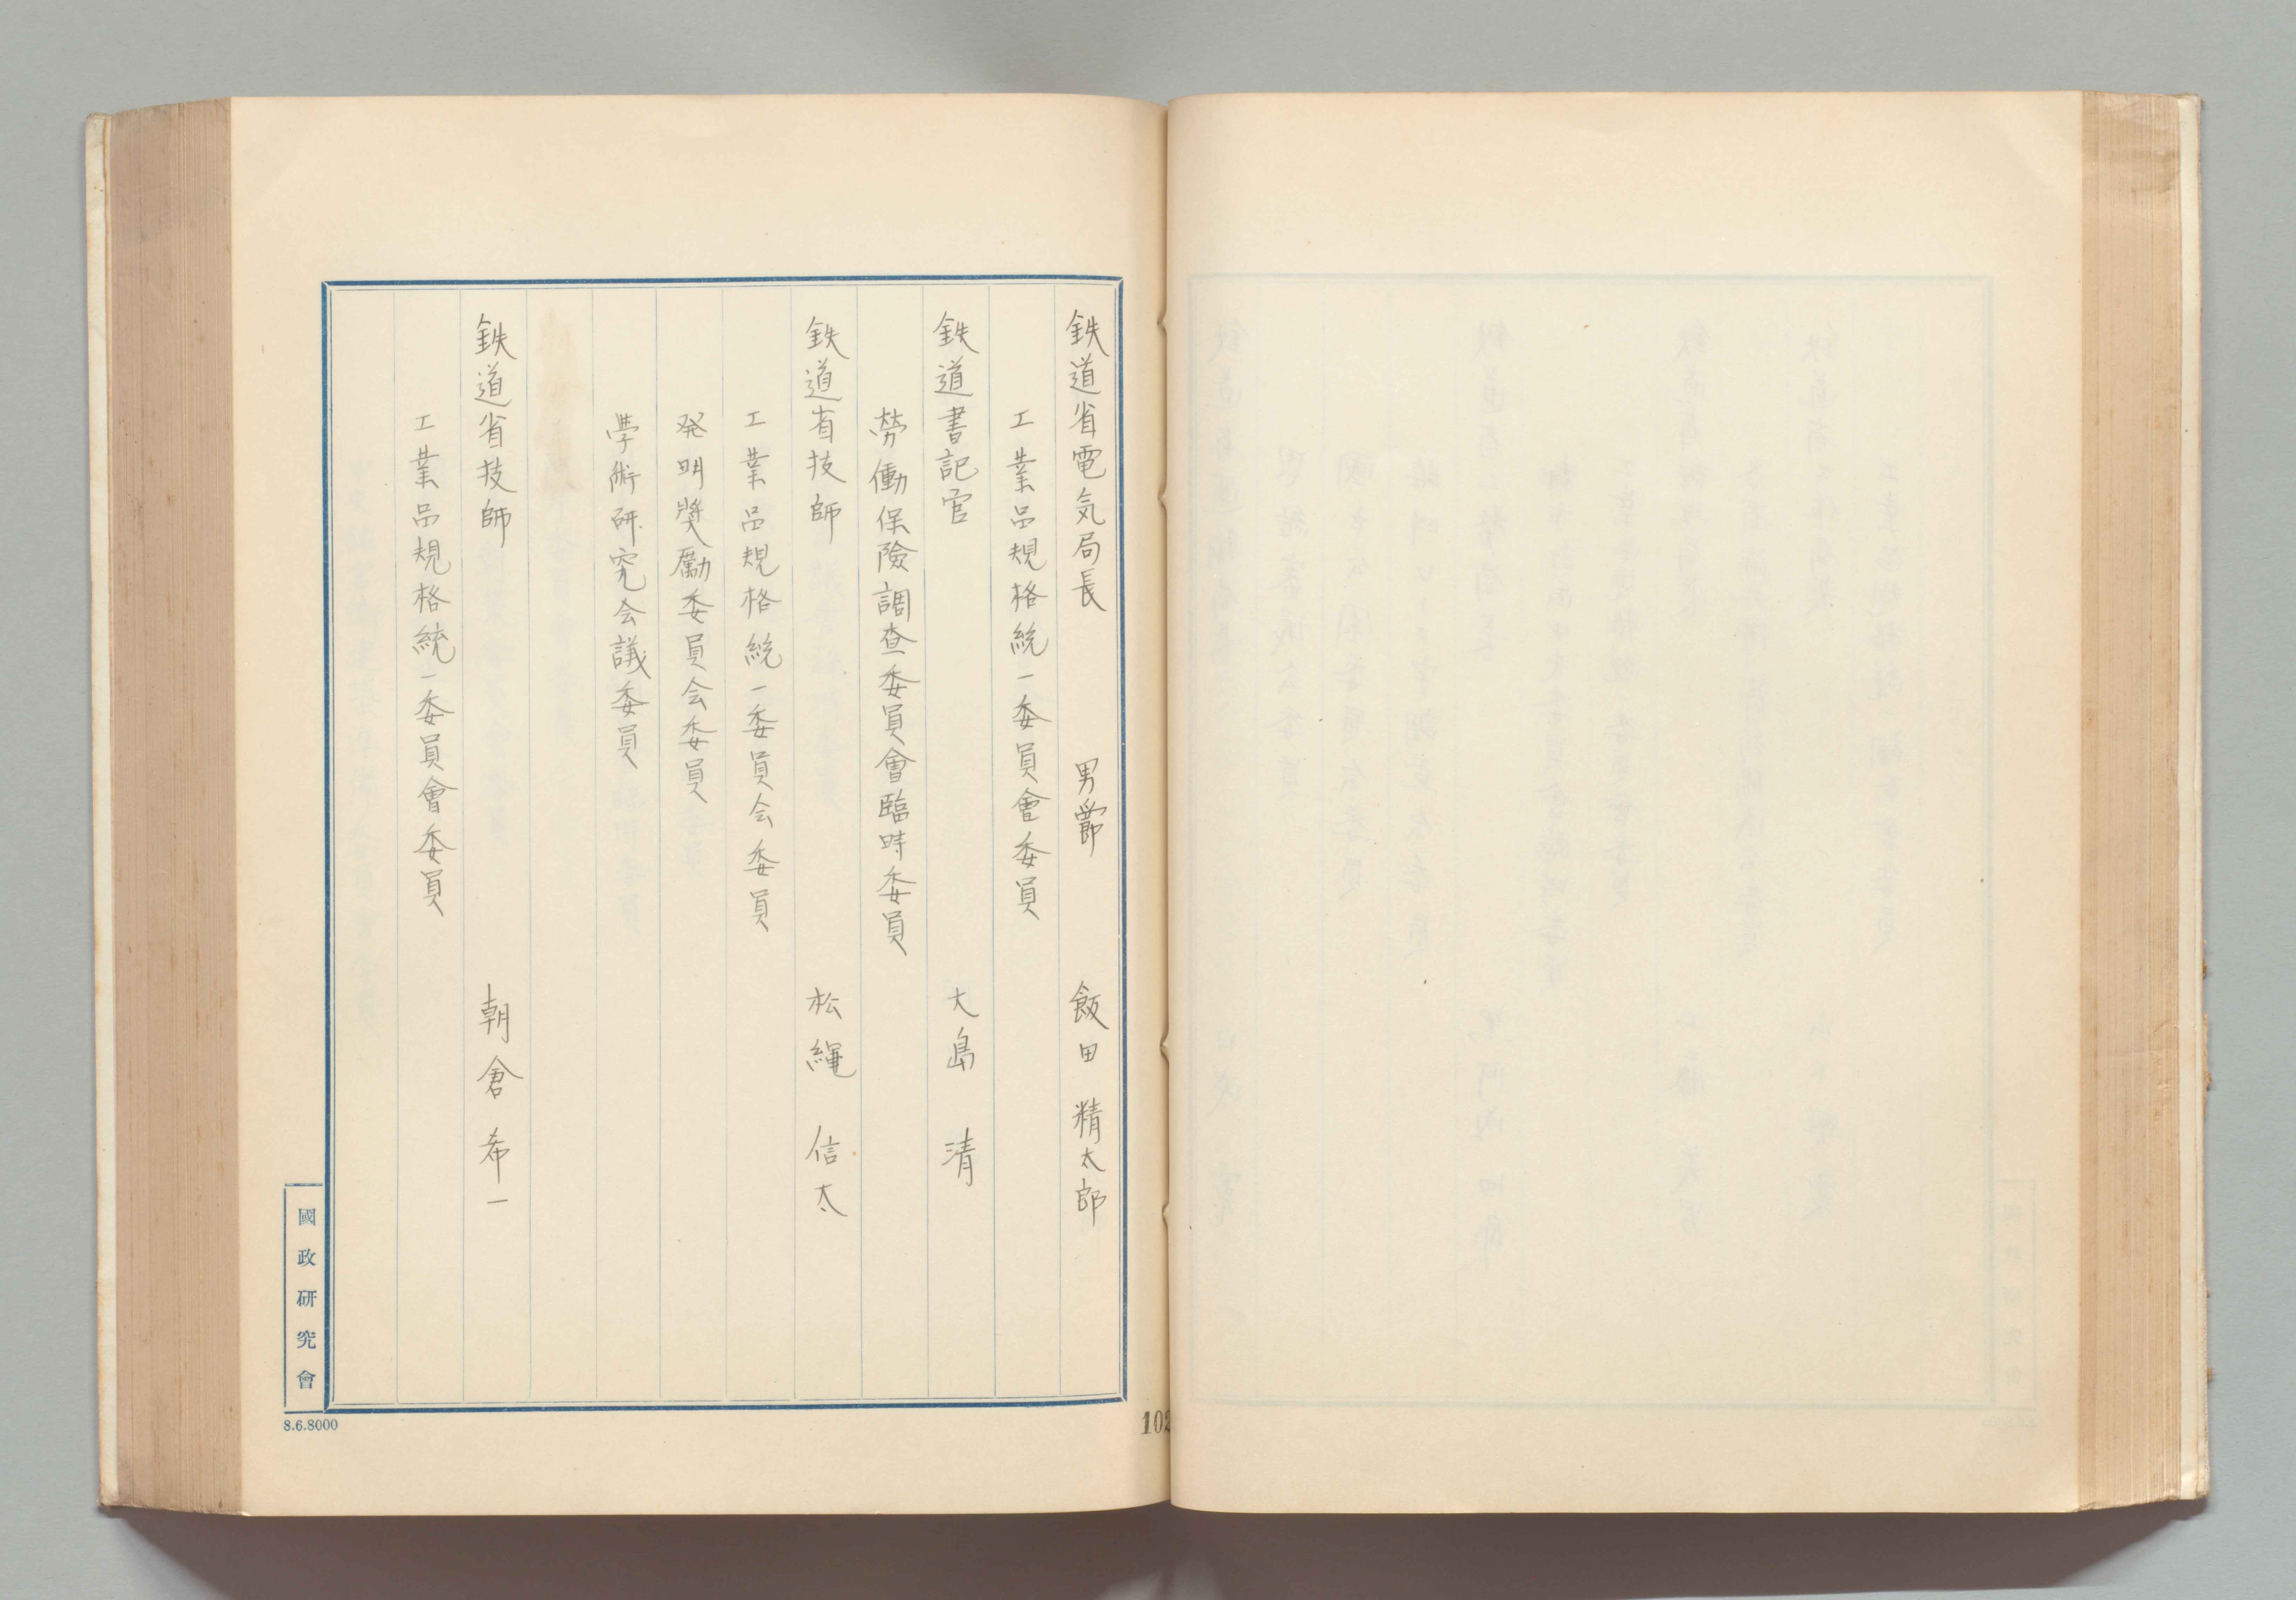 鉄道省電気局長 男爵 飯田精太郎
工業品規格統一委員會委員
鉄道書記官 大島清
勞働保險調查委員會臨時委員
鉄道省技師 松繩信太
工業品規格統一委員会委員
発明奬勵委員会委員
學術研究会議委員
鉄道省技師 朝倉希一
工業品規格統一委員會委員
國政研究會
8.6.8000
102